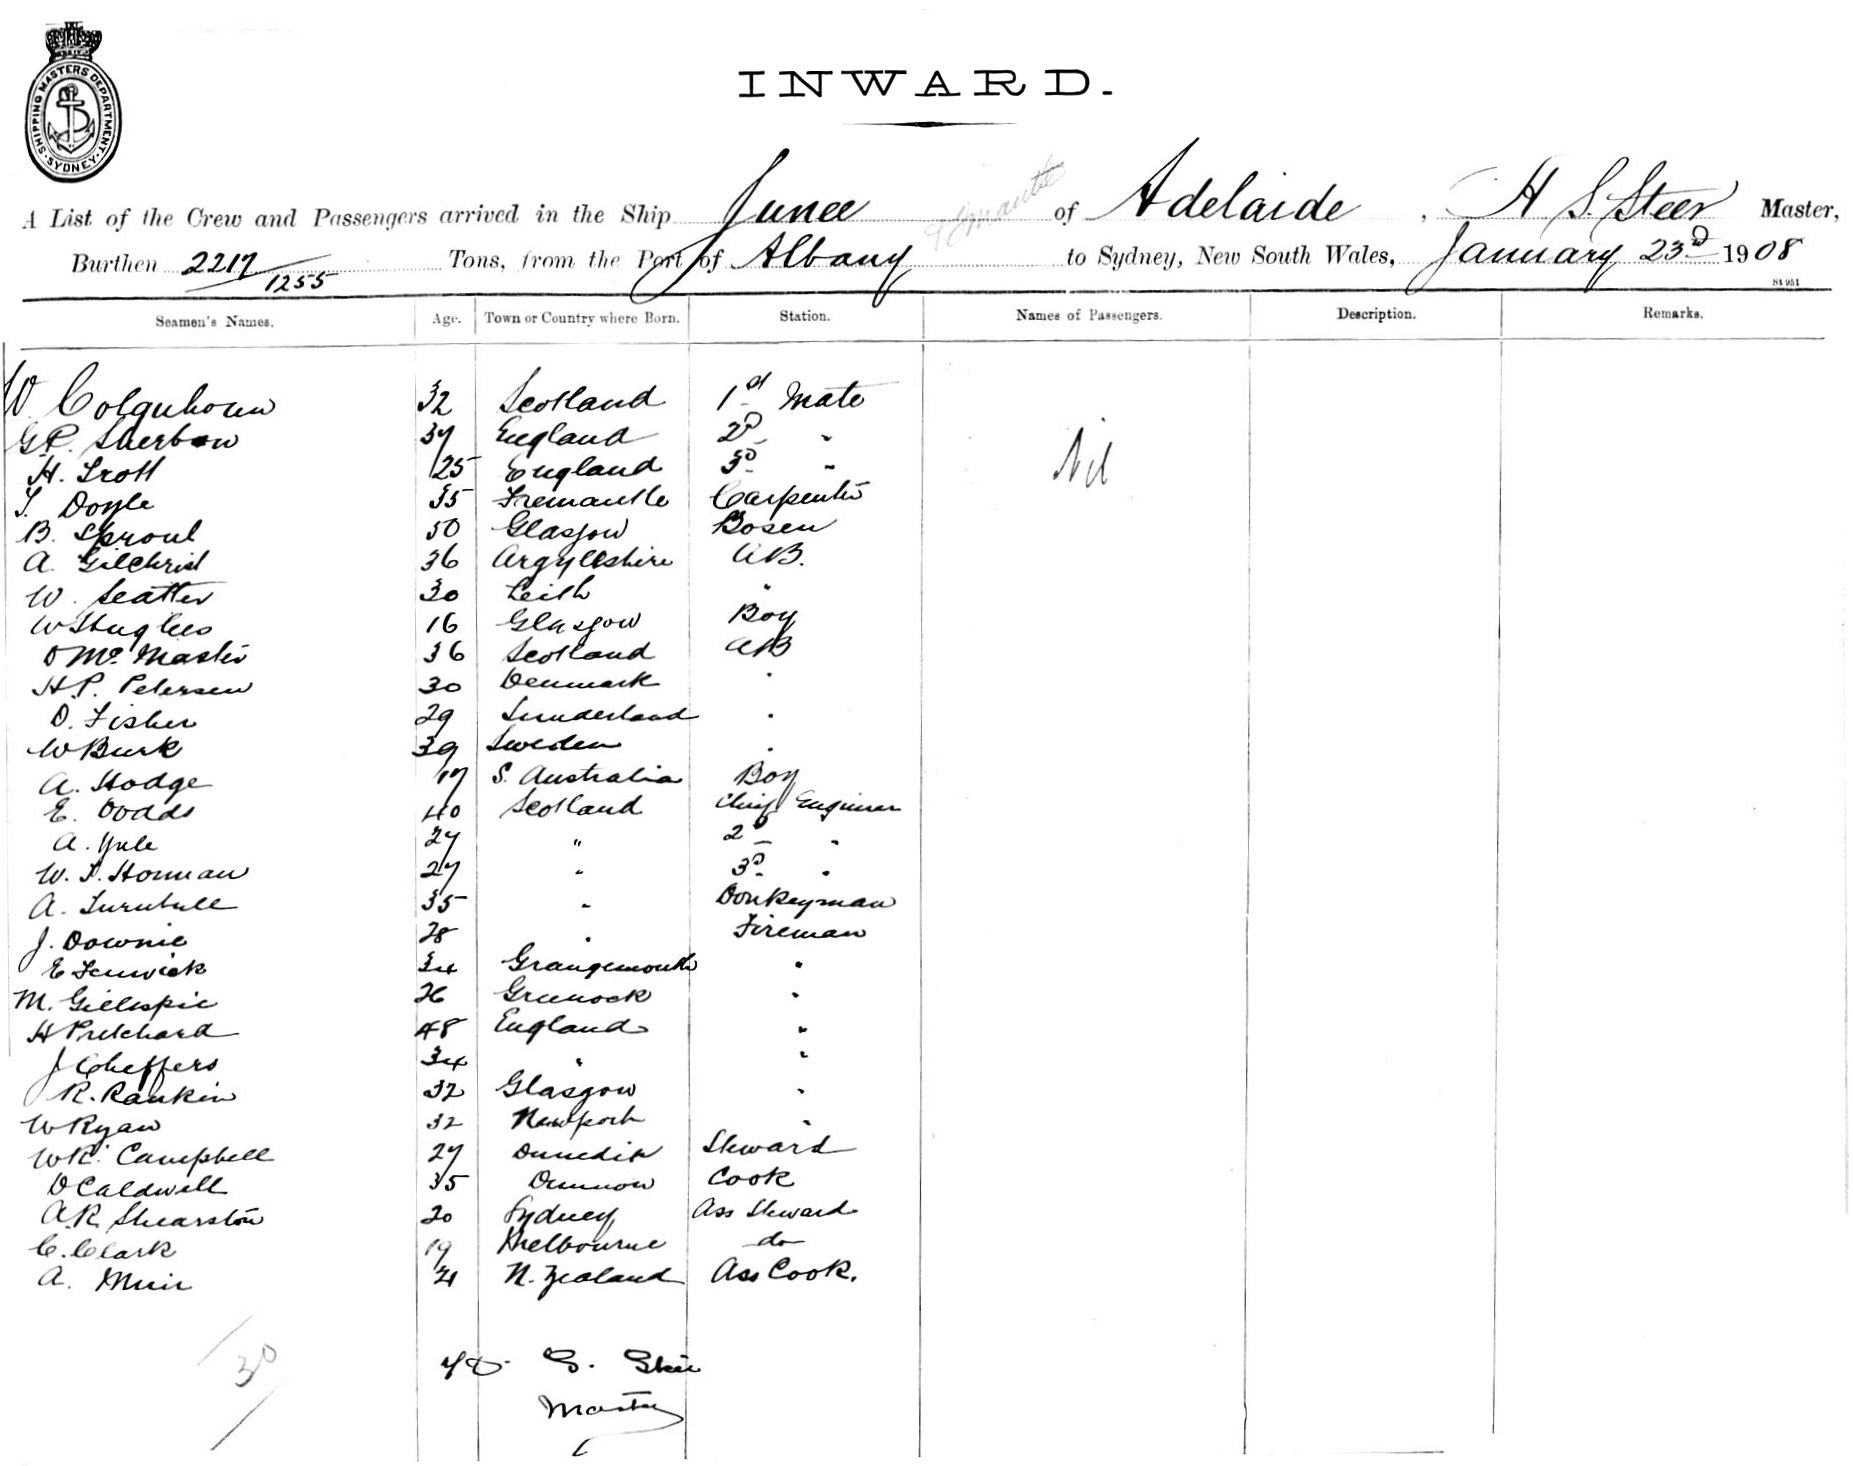 SHIPPING MASTERS DEPARTMENT · SYDNEY ·
INWARD.
A List of the Crew and Passengers arrived in the Ship Junee of Adelaide, H S. Steer Master,
Burthen 2217/1255 Tons, from the Port of Albany to Sydney, New South Wales, January 23rd 1908
Seamen's Names. Age. Town or Country where Born. Station. Names of Passengers. Description. Remarks.
W. Colquhoun 32 Scotland 1st Mate
G P. Sherbon 37 England 2D "
H. Trott 25 England 3D " Nil
T. Doyle 35 Fremantle Carpenter
B. Sproul 50 Glasgow Bosen
A. Gilchrist 36 Argyllshire AB.
W. Seatter 30 Leith "
W Hughes 16 Glasgow Boy
D Mc Master 36 Scotland AB
H.P. Petersen 30 Denmark "
D. Fisher 29 Sunderland "
W Burk 39 Sweden "
A. Hodge 17 S. Australia Boy
E. Dodds 40 Scotland Chief Engineer
A. Yule 27 " 2D "
W. T. Honman 27 " 3D "
A. Turnbull 35 " Donkeyman
J. Downie 28 " Fireman
E Fenwick 34 Grangemouth "
M. Gillespie 26 Greenock "
H Pritchard 48 England "
J Cheffers 34 " "
R. Rankin 32 Glasgow "
W Ryan 32 Newport "
W R. Campbell 27 Dunedin Steward
D Caldwell 35 Dunnow Cook
A.R. Shearston 20 Sydney Ass Steward
C. Clark 19 Melbourne do
A. Muir 21 N. Zealand Ass Cook.
30
S. Steer
Master